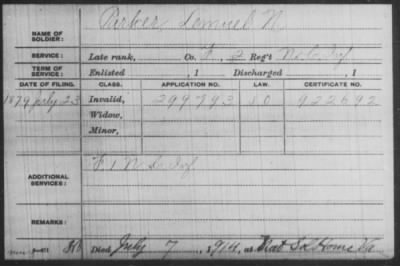 NAME OF SOLDIER: Parker, Lemuel N.
SERVICE: Late rank, Co. F, 2 Reg't N.C. Inf
TERM OF SERVICE: Enlisted , 1 Discharged , 1
DATE OF FILING. CLASS. APPLICATION NO. LAW. CERTIFICATE NO.
1879 July 23 Invalid, 299793 922692
Widow,
Minor,
ADDITIONAL SERVICES: F 1 Inf
REMARKS:
Died July 7, 1914, at Nat Sol Home Va